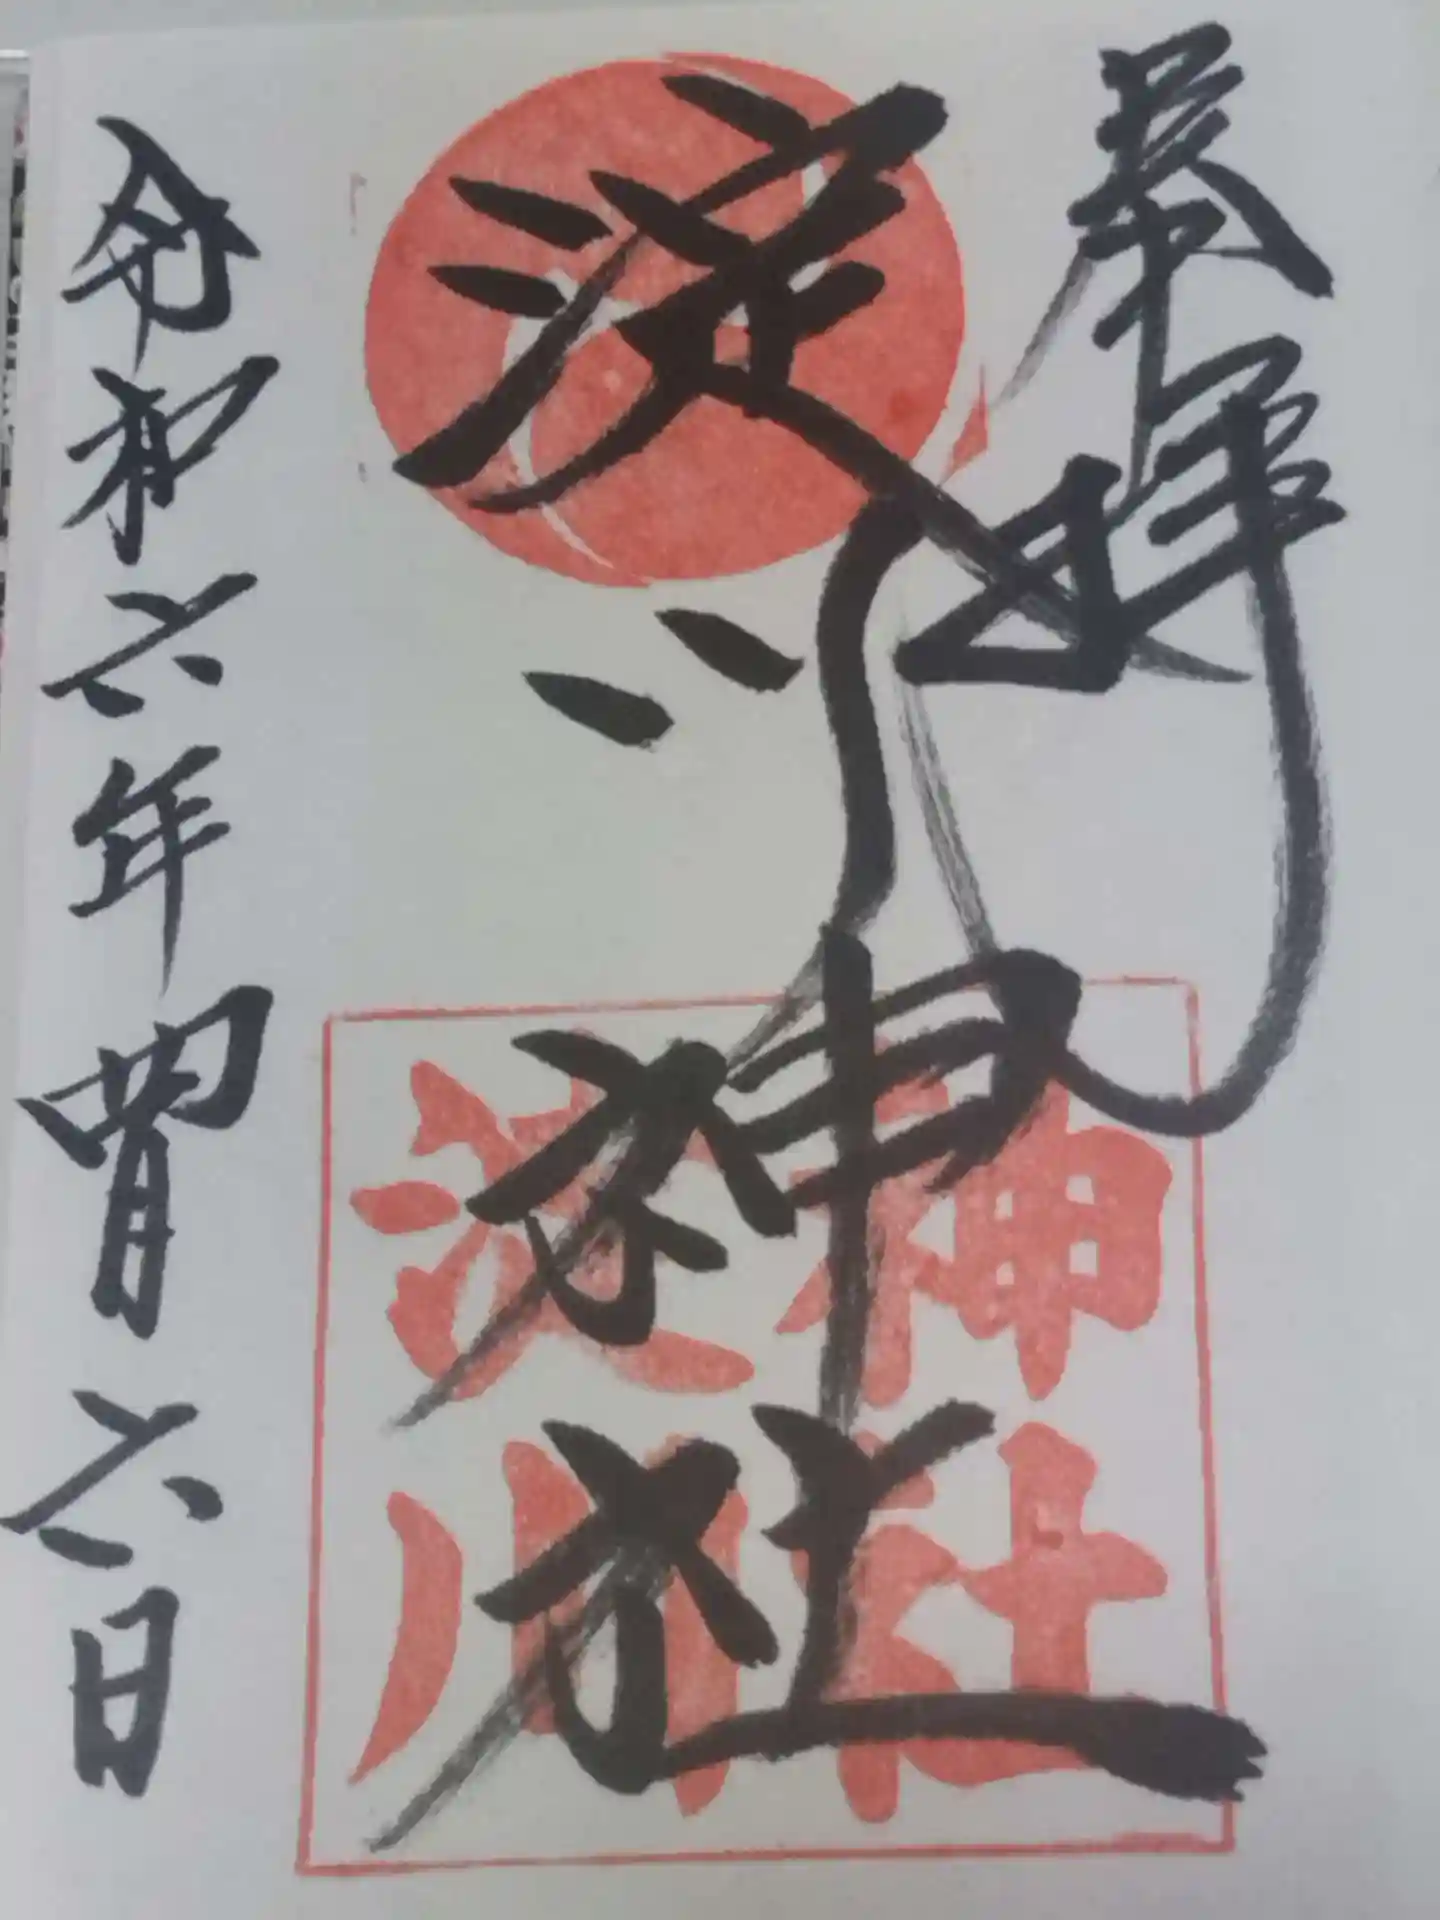 奉拝
淀川神社
淀川
神社
令和六年四月六日